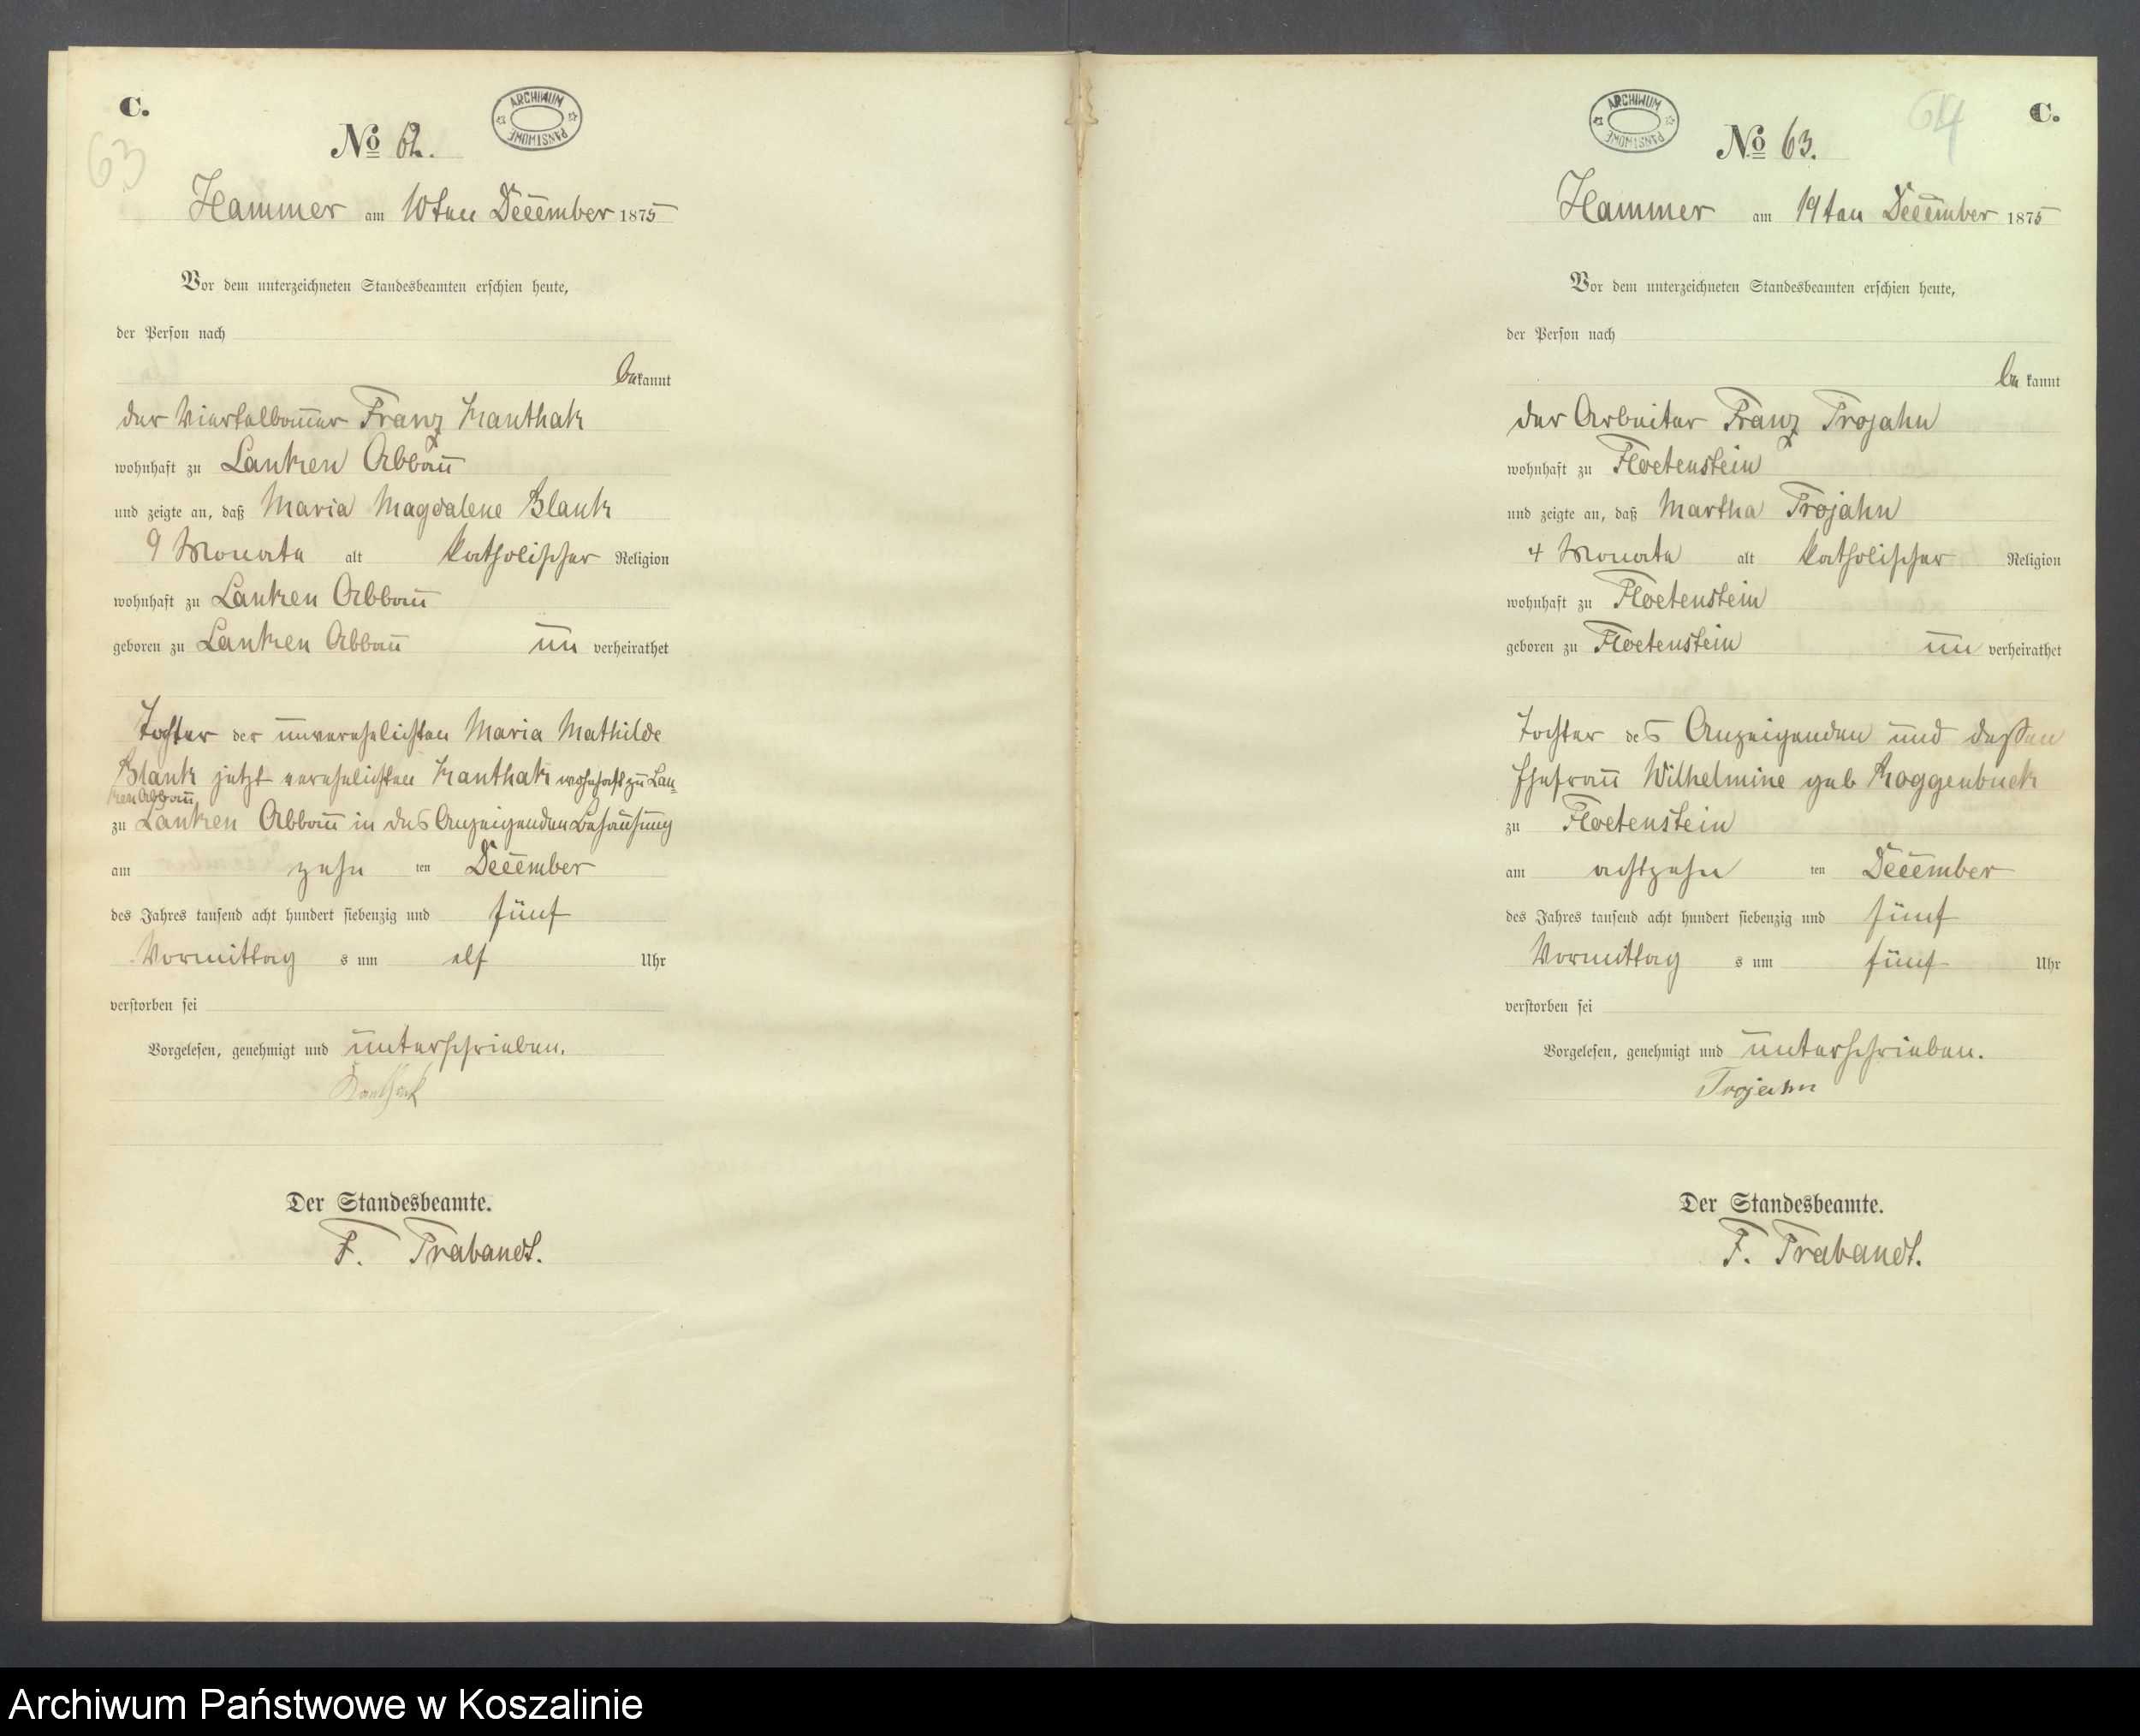 C.
63
ARCHIWUM PAŃSTWOWE
No 62.
Hammer am 10ten December 1875
Vor dem unterzeichneten Standesbeamten erschien heute,
der Person nach
bekannt
der Viertelbauer Franz Kanthak
wohnhaft zu Lanken Abbau
und zeigte an, daß Maria Magdalene Blank
9 Monate alt katholischer Religion
wohnhaft zu Lanken Abbau
geboren zu Lanken Abbau un verheirathet
Tochter der unverehelichten Maria Mathilde
Blank jetzt verehelichten Kanthak wohnhaft zu Lan-
ken Abbau
zu Lanken Abbau in des Anzeigenden Behausung
am zehn ten December
des Jahres tausend acht hundert siebenzig und fünf
Vormittag s um elf Uhr
verstorben sei
Vorgelesen, genehmigt und unterschrieben.
Kanthak
Der Standesbeamte.
F. Trabandt.
ARCHIWUM PAŃSTWOWE
64
C.
No 63.
Hammer am 19ten December 1875
Vor dem unterzeichneten Standesbeamten erschien heute,
der Person nach
be kannt
der Arbeiter Franz Trojahn
wohnhaft zu Floetenstein
und zeigte an, daß Martha Trojahn
4 Monate alt katholischer Religion
wohnhaft zu Floetenstein
geboren zu Floetenstein un verheirathet
Tochter des Anzeigenden und dessen
Ehefrau Wilhelmine geb Roggenbuck
zu Floetenstein
am achtzehn ten December
des Jahres tausend acht hundert siebenzig und fünf
Vormittag s um fünf Uhr
verstorben sei
Vorgelesen, genehmigt und unterschrieben.
Trojahn
Der Standesbeamte.
F. Trabandt.
Archiwum Państwowe w Koszalinie